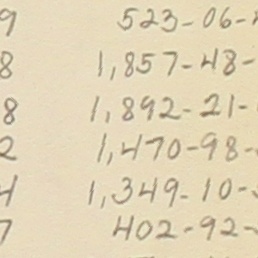 9 523-06-
8 1,857-48-
8 1,892-21-
2 1,470-98-
4 1,349-10-
7 402-92-